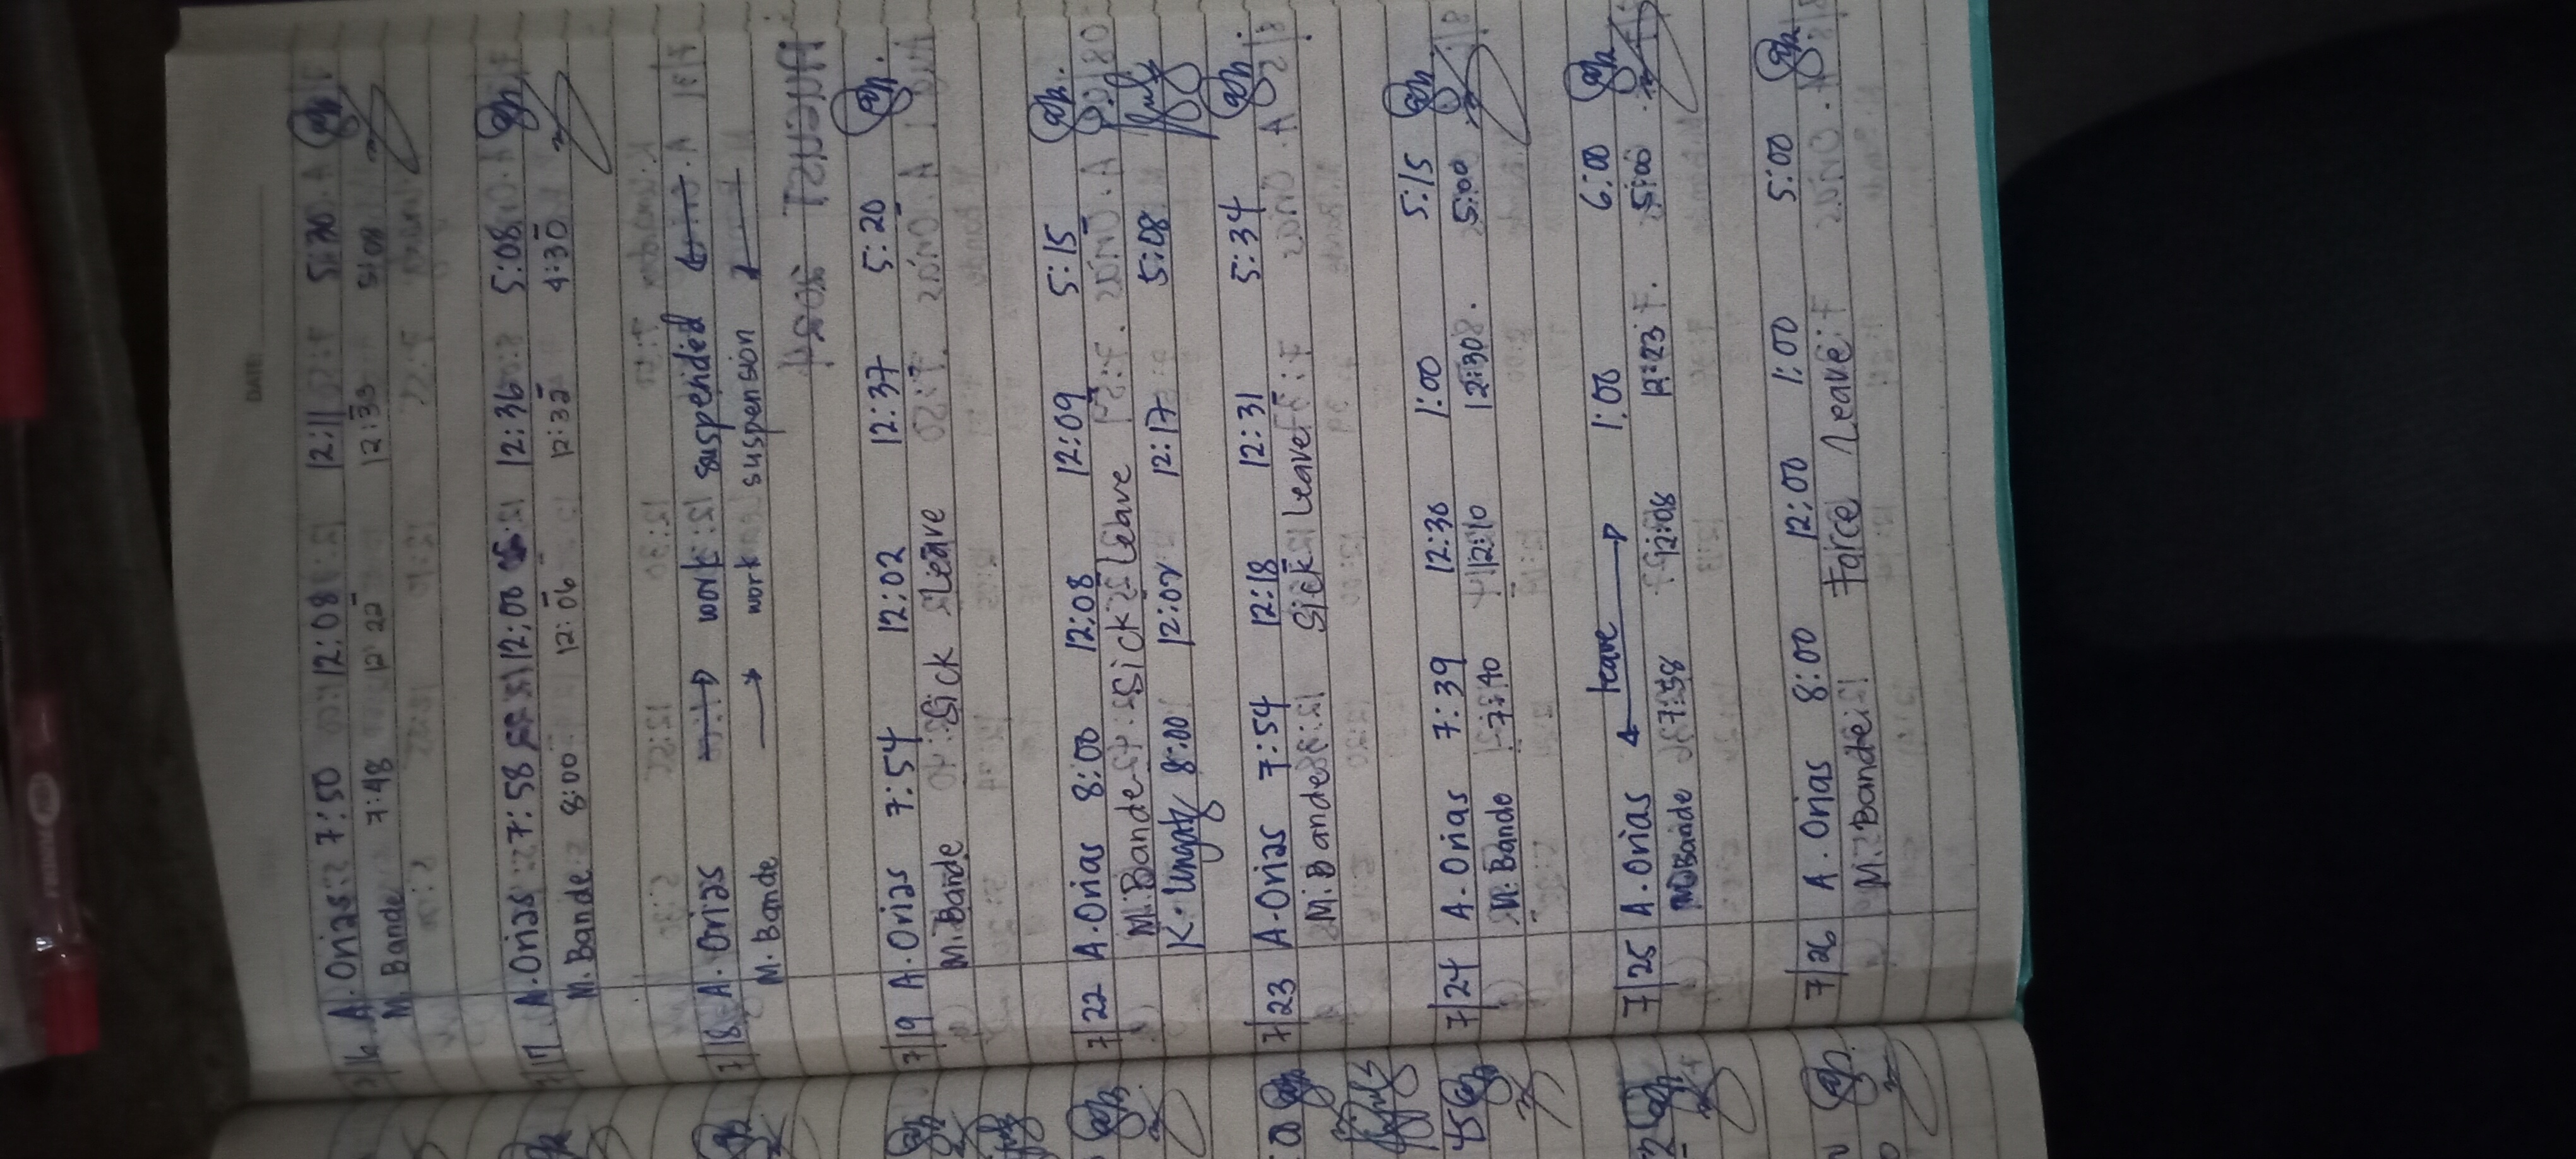 DATE:
7/16 A. Orias 7:50 12:08 12:11 5:20
M. Bande 7:48 12:22 12:33 5:08
7/17 A. Orias 7:58 12:00 12:36 5:08
M. Bande 8:00 12:06 12:32 4:30
7/18 A. Orias work suspended
M. Bande → work suspension
7/19 A. Orias 7:54 12:02 12:37 5:20
M. Bande Sick Leave
7/22 A. Orias 8:00 12:08 12:09 5:15
M. Bande Sick Leave
K. 8:00 12:02 12:17 5:08
7/23 A. Orias 7:54 12:18 12:31 5:34
M. Bande Sick Leave
7/24 A. Orias 7:39 12:36 1:00 5:15
M. Bande 7:40 12:10 12:30 5:00
7/25 A. Orias ← leave → 1:00 6:00
M. Bande 7:58 12:08 12:23 5:00
7/26 A. Orias 8:00 12:00 1:00 5:00
M. Bande Force Leave